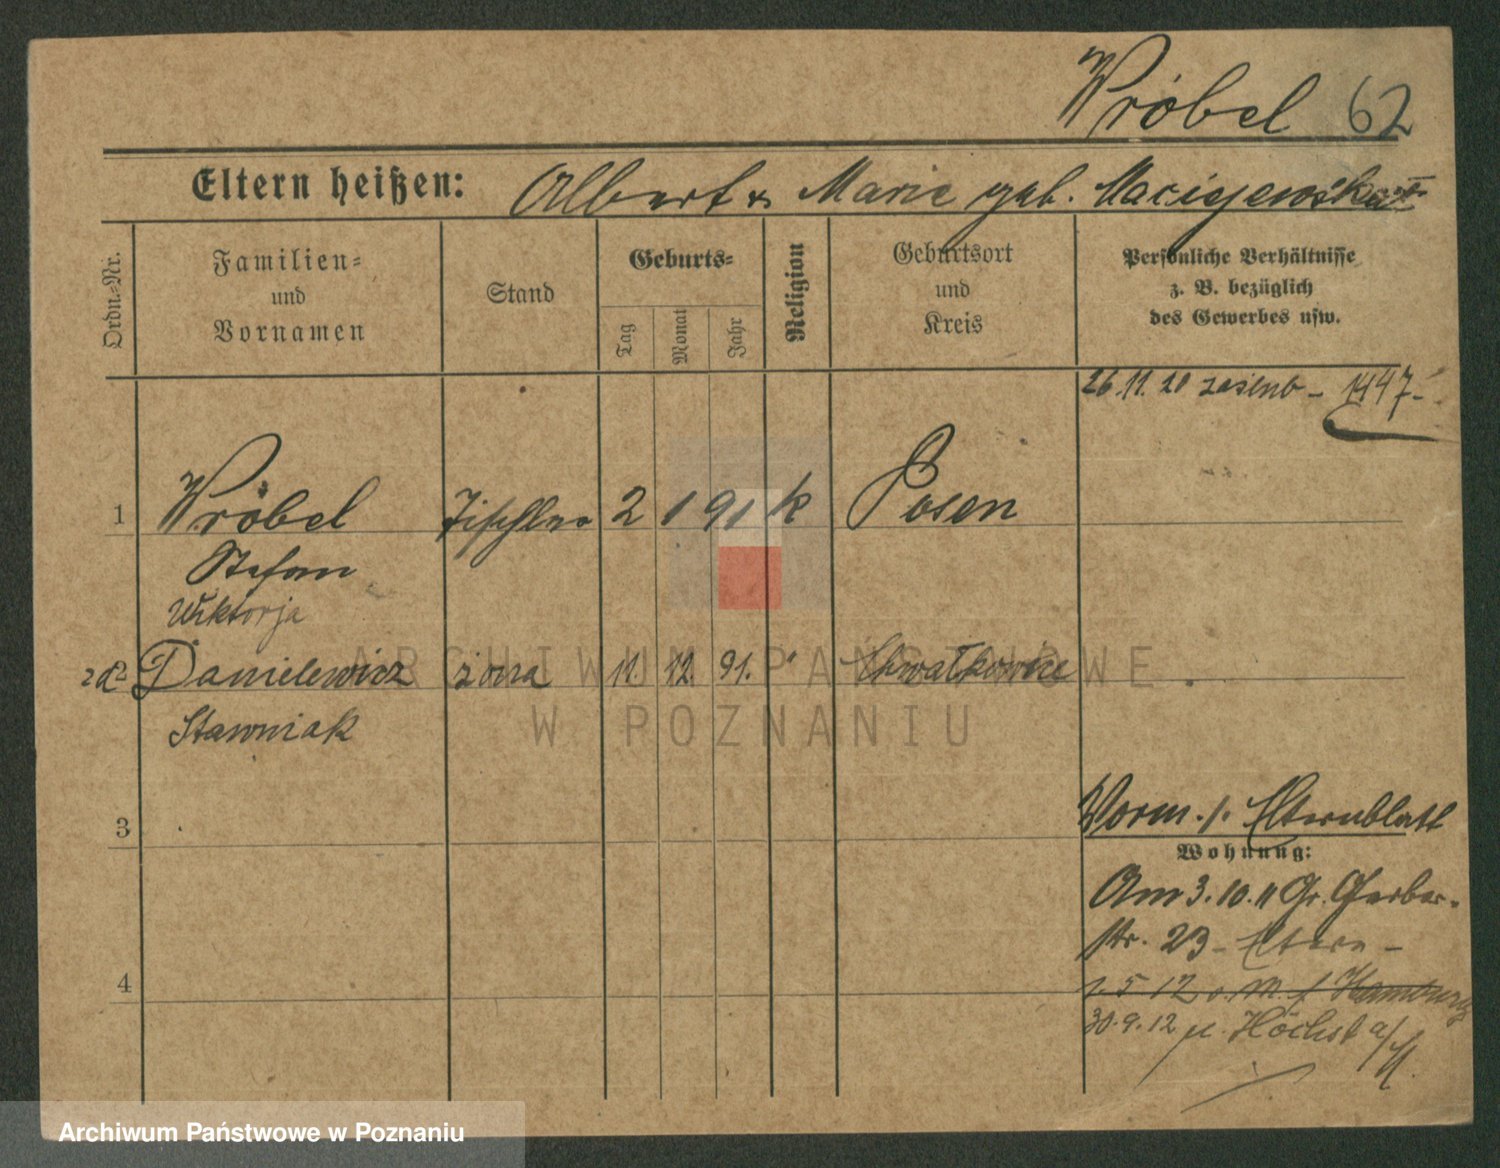 Wróbel 62
Eltern heißen: Albert & Marie geb. Maciejewska
Ordn.-Nr.
Familien-
und
Vornamen
Stand
Geburts-
Tag
Monat
Jahr
Religion
Geburtsort
und
Kreis
Persönliche Verhältnisse
z. B. bezüglich
des Gewerbes usw.
26.11.20 1447.
1 Wróbel Tischler 2 1 91 k Posen
Stefan
Wiktorja
2 Danielewicz żona 11. 12. 91. " Chwałkowice
Stawniak
3
Vorm. s. Elternblatt
Wohnung:
Am 3.10.11 Gr. Gerber-
str. 23 - Eltern -
4
1.5 12 Hamburg
30.9.12 n. Höchst a/M.
ARCHIWUM PAŃSTWOWE
W POZNANIU
Archiwum Państwowe w Poznaniu